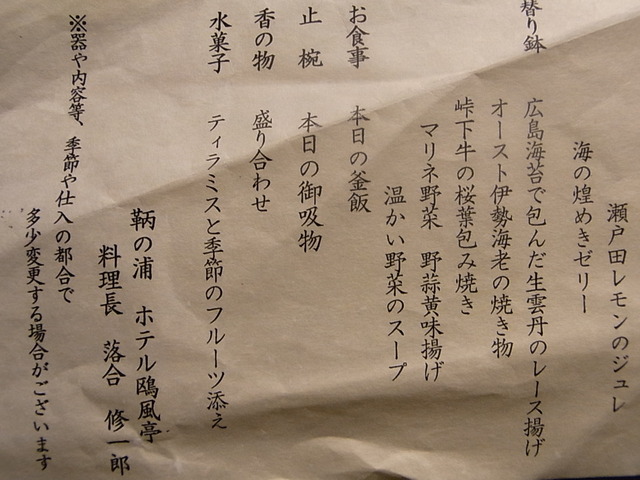 瀬戸田レモンのジュレ
海の煌めきゼリー
替り鉢 広島海苔で包んだ生雲丹のレース揚げ
オースト伊勢海老の焼き物
峠下牛の桜葉包み焼き
マリネ野菜 野蒜黄味揚げ
温かい野菜のスープ
お食事 本日の釜飯
止椀 本日の御吸物
香の物 盛り合わせ
水菓子 ティラミスと季節のフルーツ添え
鞆の浦 ホテル鷗風亭
料理長 落合 修一郎
※器や内容等、季節や仕入の都合で
多少変更する場合がございます